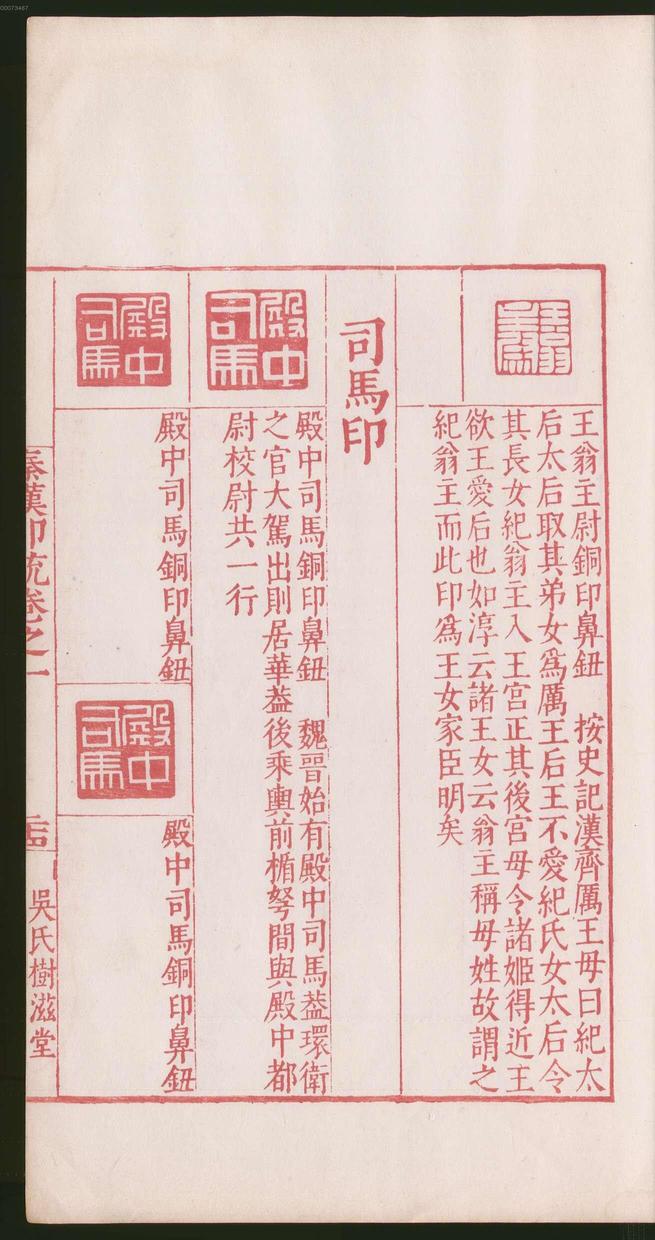 00073467
王翁主尉
王翁主尉銅印鼻鈕　按史記漢齊厲王母曰紀太
后太后取其弟女為厲王后王不愛紀氏女太后令
其長女紀翁主入王宮正其後宮毋令諸姬得近王
欲王愛后也如淳云諸王女云翁主稱母姓故謂之
紀翁主而此印為王女家臣明矣
司馬印
殿中司馬
殿中司馬銅印鼻鈕　魏晉始有殿中司馬葢環衛
之官大駕出則居華葢後乘輿前楯弩間與殿中都
尉校尉共一行
殿中司馬
殿中司馬銅印鼻鈕
殿中司馬
殿中司馬銅印鼻鈕
秦漢印統卷之一
吳氏樹滋堂